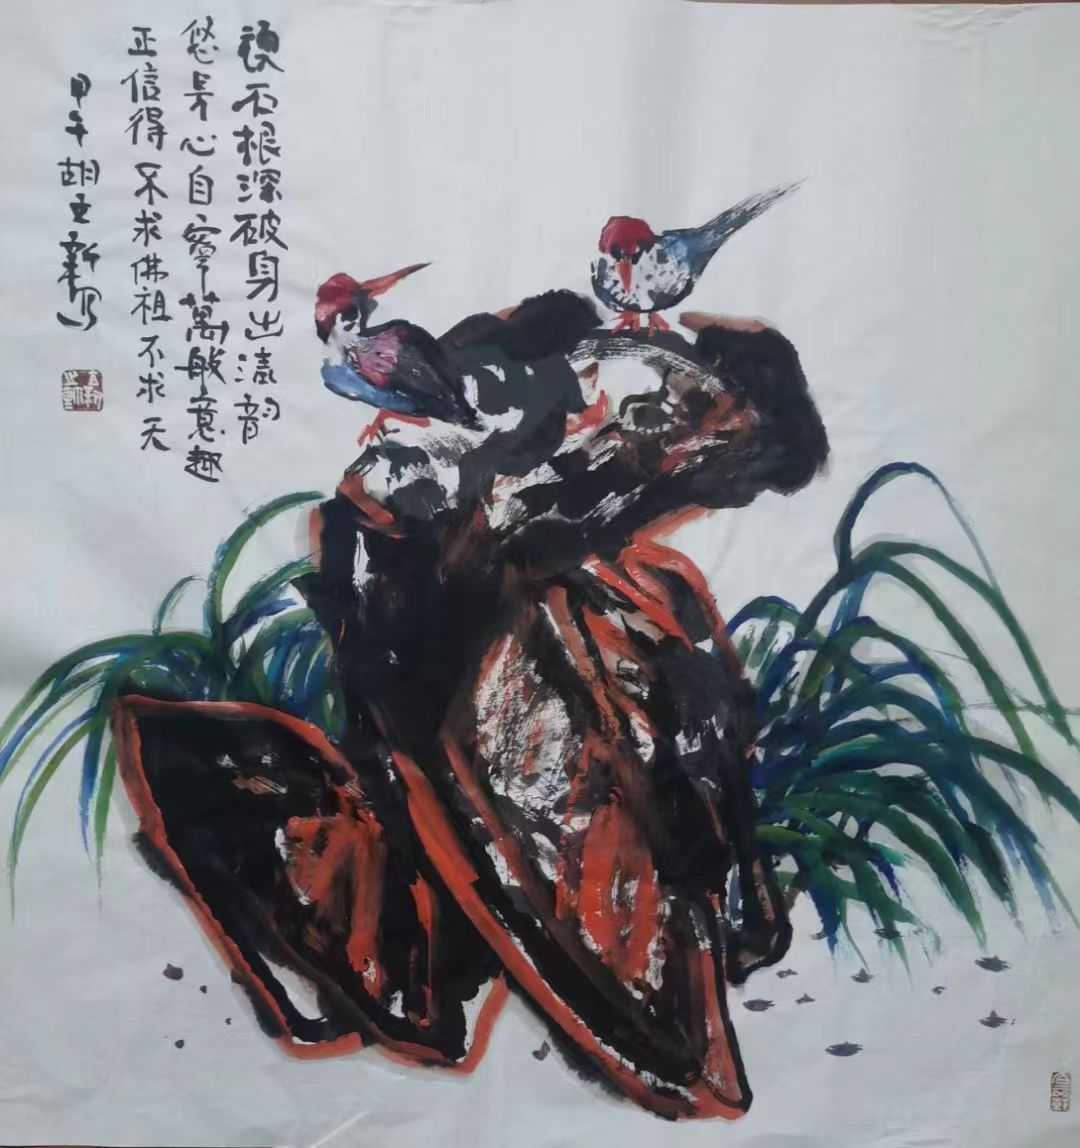 頑石根深破身出韵
悠長心自寧萬般意趣
正信得不求佛祖不求天
甲午胡新写